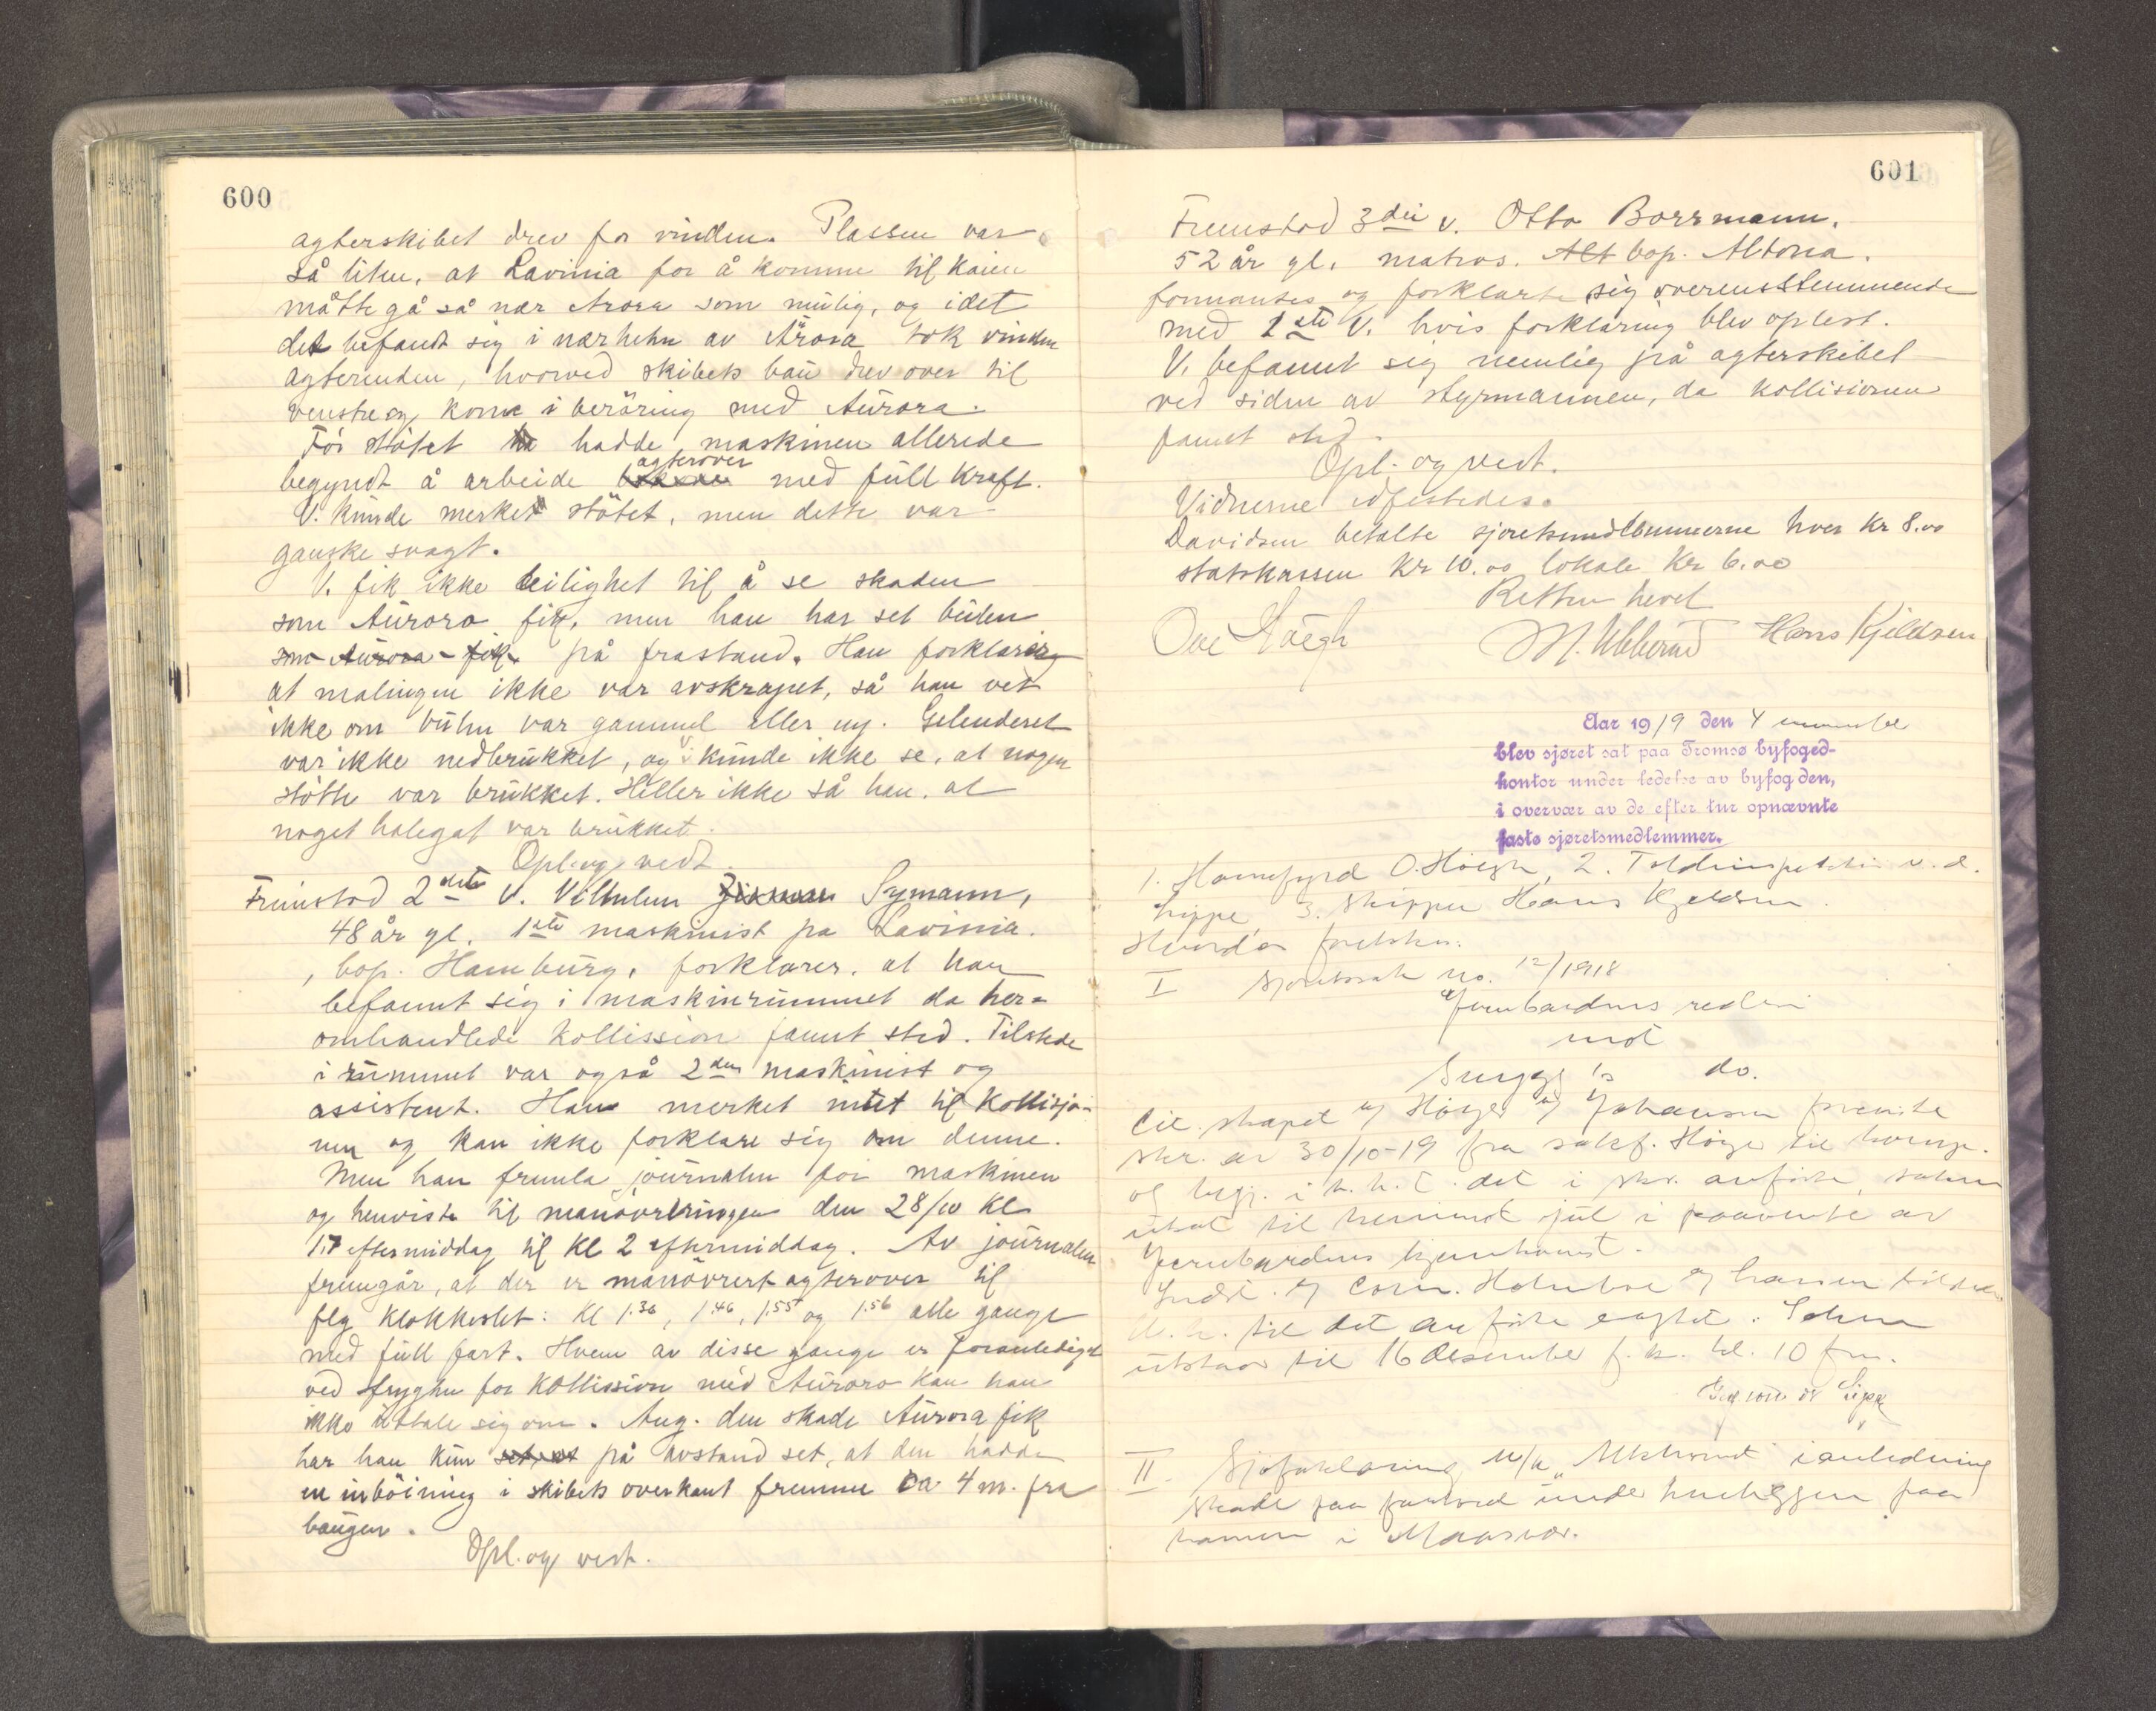 600
agterskibet drev for vinden. Plassen var
så liten, at Lavinia for å komme til kaien
måtte gå så nær Arora som mulig, og idet
det befandt sig i nærheten av Arora tok vinden
agterenden, hvorved skibets baug drev over til
venstre og kom i beröring med Aurora.
För stötet hadde maskinen allerede
begyndt å arbeide agterover med full kraft.
V. kunde merket stötet, men dette var
ganske svagt.
V. fik ikke leilighet til å se skaden
som Aurora fik, men han har set bulen
som Aurora fik på frastand. Han forklarer
at malingen ikke var avskrapet, så han vet
ikke om bulen var gammel eller ny. Gelenderet
var ikke nedbrukket, og V. kunde ikke se, at nogen
stötte var brukket. Heller ikke så han, at
noget halegat var brukket.
Opl. og vedt.
Fremstod 2det V. Vilhelm Symann,
48 år gl. 1ste maskinist på Lavinia.
, bop. Hamburg, forklarer, at han
befannt sig i maskinrummet da her-
omhandlede kollission fannt sted. Tilstede
i rummet var også 2den maskinist og
assistent. Han merket intet til kollisjo-
nen og kan ikke forklare sig om denne.
Men han fremla journalen for maskinen
og henviste til manövreringen den 28/10 kl
1.7 eftermiddag til kl 2 eftermiddag. Av journalen
fremgår, at der er manövrert agterover til
flg klokkeslet: kl 1.36, 1.46, 1.55 og 1.56 alle gange
med full fart. Hvem av disse gange er foranlediget
ved frygten for kollission med Aurora kan han
ikke uttale sig om. Ang. den skade Aurora fik
har han kun på avstand set, at den hadde
en inböining i skibets overkant fremme ca 4 m. fra
baugen.
Opl. og vedt.
601
Fremstod 3die v. Otto Borrmann,
52 år gl. matros. Alt bop. Altona.
formantes og forklarte sig overensstemmende
med 1ste V. hvis forklaring blev oplest.
V. befannt sig nemlig på agterskibet
ved siden av styrmannen, da kollisionen
fannt sted.
Opl. og vedt.
Vidnerne edfestedes.
Davidsen betalte sjoretsmedlemmerne hver kr 8.00
statskassen kr 10.00 lokale kr 6.00
Retten hevet
Ove Höegh Hans Kjeldsen
Aar 1919 den 4 november
blev sjøret sat paa Tromsø byfoged-
kontor under ledelse av byfogden,
i overvær av de efter tur opnævnte
faste sjøretsmedlemmer.
1. Havnefogd O. Höegh, 2. Toldinspektör v. d.
Lippe 3. Skipper Hans Kjeldsen.
Hvorda foretokes:
I Sjøretssak no. 12/1918
Jernbardens rederi
mot
do.
skr. av 30/10-19 fra sakf. Höyer til
og begj. i h. h. t. det i skr. anförte, saken
utsat til henimot jul i paavente av
Jernbardens hjemkomst.
til det anförte
utstaar til 16 desember f. k. kl. 10 fm.
II Sjöforklaring m/k i anledning
skade paa
havnen i Maasvær.